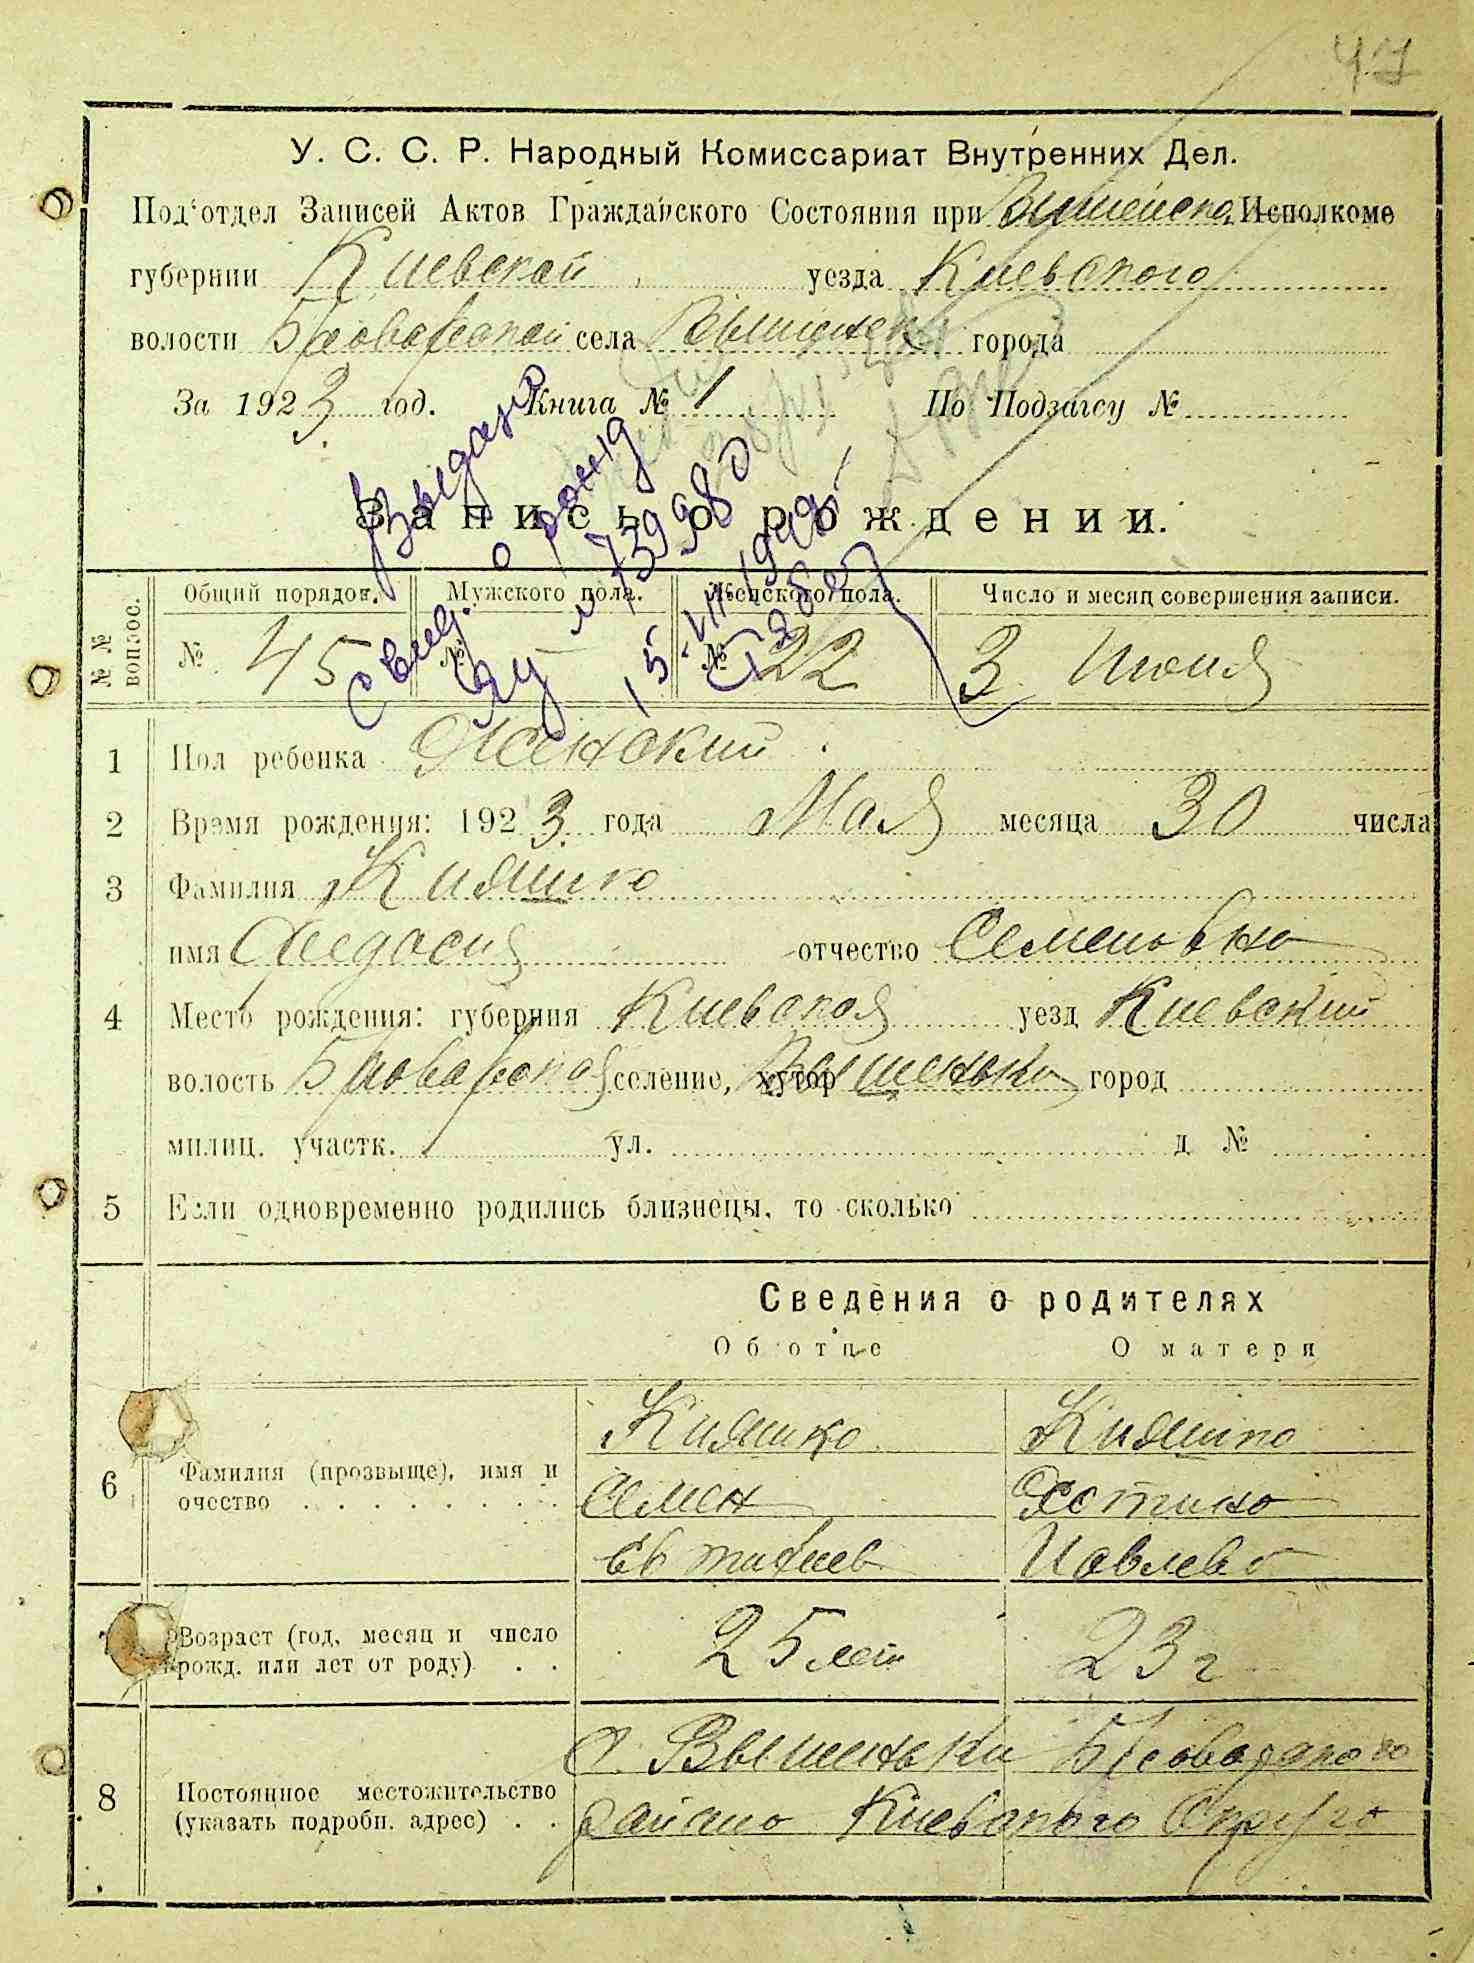 47
У. С. С. Р. Народный Комиссариат Внутренних Дел.
Под‘отдел Записей Актов Гражданского Состояния при Исполкоме
губернии Киевской уезда Киевского
волости Броварской села Вышеньки города
За 1923 год. Книга № 1 По Подзагсу №
Выдано
свид. о рожд
Запись о рождении.
№№ вопрос. Общий порядов. Мужского пола. Женского пола. Число и месяц совершения записи.
№ 45 № — № 22 3 Июня
1 Пол ребенка Женский
2 Время рождения: 1923 года Мая месяца 30 числа
3 Фамилия Кияшко
имя Федосия отчество Семеновна
4 Место рождения: губерния Киевская уезд Киевский
волость Броварская селение, хутор Вышеньки город
милиц. участк. ул. д №
5 Если одновременно родились близнецы, то сколько
Сведения о родителях
Об отце О матери
6 Фамилия (прозвыще), имя и очество
Кияшко Кияшко
Семен Устина
Евтифиев Павлева
7 Возраст (год, месяц и число рожд. или лет от роду)
25 лет 23 г
8 Постоянное местожительство (указать подробн. адрес)
с. Вышеньки Броварского
района Киевского Округа